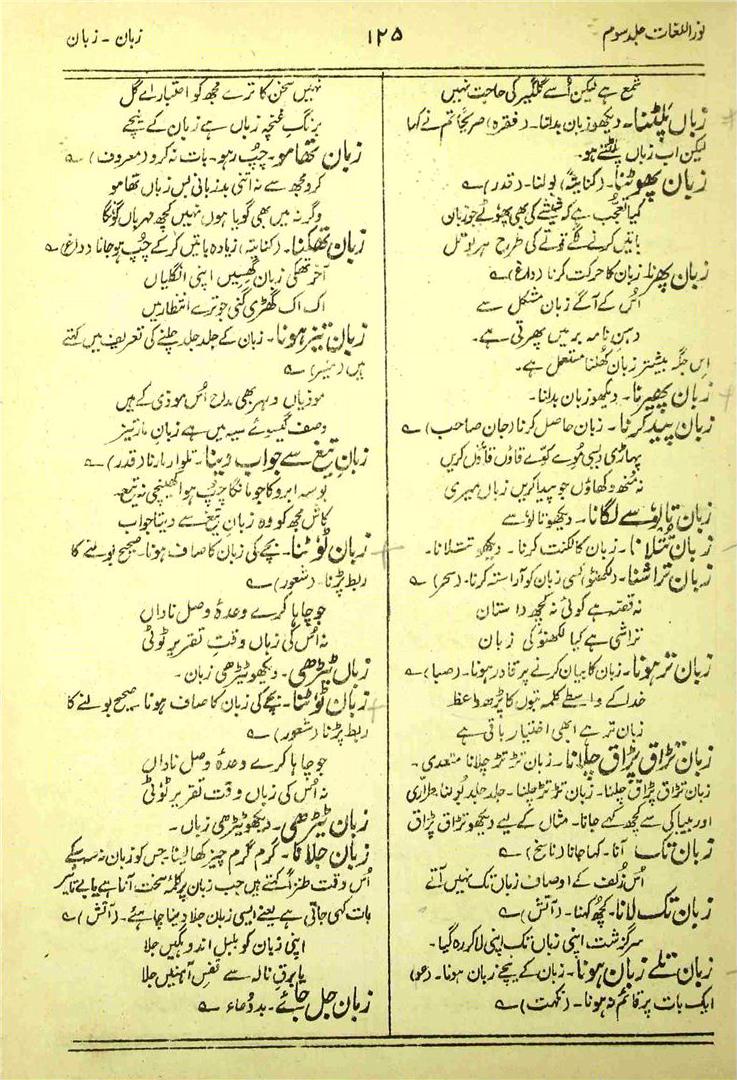 نوراللغات جلد سوم
۱۲۵
زبان - زبان
شمع ہے لیکن اُسے گلگیر کی حاجت نہیں
زباں پلٹنا۔ دیکھو زبان بدلنا۔ (فقرہ) صریحًا تم نے کہا
لیکن اب زباں پلٹتے ہو۔
زبان پھوٹنا۔ (کنایتہً) بولنا۔ (قدر) ؎
کیا تعجب ہے کہ شیشے کی بھی پھوٹے جو زبان
باتیں کرنے لگے توتے کی طرح ہر بوتل
زبان پھرنا۔ زبان کا حرکت کرنا (داغ) ؎
اُس کے آگے زبان مشکل سے
دہن نامہ بر میں پھرتی ہے۔
اِس جگہ بیشتر زبان کُھلنا مستعمل ہے۔
زبان پھیرنا۔ دیکھو زبان بدلنا۔
زبان پیدا کرنا۔ زبان حاصل کرنا (جان صاحب) ؎
پہاڑی ایسی مُوے کوّے قاؤں قاؤں کریں
نہ منھ دکھاؤں جو پیدا کریں زباں میری
زبان تالو سے لگانا۔ دیکھو تالو سے
زبان تتلانا۔ زبان کا لکنت کرنا۔ دیکھو تتلانا۔
زبان تراشنا۔ (لکھنؤ) کسی زبان کو آراستہ کرنا۔ (سحر) ؎
نہ قصّہ ہے کوئی نہ کچھ داستان
تراشی ہے کیا لکھنؤ کی زبان
زبان تر ہونا۔ زبان کا بیان کرنے پر قادر ہونا۔ (صبا) ؎
خدا کے واسطے کلمہ بتوں کا پڑھ واعظ
زبان تر ہے ابھی اختیار باقی ہے
زبان تڑاق پڑاق چلانا۔ زبان تڑ تڑ چلانا متعدی۔
زبان تڑاق پڑاق چلنا۔ زبان تڑ تڑ چلنا۔ جلد جلد بولنا طرّاری
اور بیباکی سے کچھ کہے جانا۔ مثال کے لیے دیکھو تڑاق پڑاق
زبان تک آنا۔ کہا جانا (ناسخ) ؎
اُس زُلف کے اوصاف زباں تک نہیں آتے
زبان تک لانا۔ کچھ کہنا۔ (آتش) ؎
سرگزشت اپنی زباں تک اپنی لا کر رہ گیا۔
زبان تلے زبان ہونا۔ زبان کے نیچے زبان ہونا۔ (عو)
ایک بات پر قائم نہ ہونا۔ (نکہت) ؎
نہیں سخن کا ترے مجھ کو اعتبار اے گل
برنگِ غنچہ زباں ہے زبان کے نیچے
زبان تھامو۔ چپ رہو۔ بات نہ کرو (معروف) ؎
کرو مجھ سے نہ اتنی بدزبانی بس زباں تھامو
وگرنہ میں بھی گویا ہوں نہیں کچھ مہرباں گونگا
زبان تھکنا۔ (کنایتہً) زیادہ باتیں کر کے چپ ہو جانا (داغ) ؎
آخر تھکی زبان گھسیں اپنی انگلیاں
اک اک گھڑی گنی جو ترے انتظار میں
زبان تیز ہونا۔ زبان کے جلد جلد چلنے کی تعریف میں کہتے
ہیں (میر) ؎
موذیاں دہر بھی مداح اُس موذی کے ہیں
وصف گیسوئے سیہ میں ہے زبانِ مار تیز
زبانِ تیغ سے جواب دینا۔ تلوار مارنا (قدر) ؎
بوسہ ابرو کا جو مانگا چپ ہوا کھینچی نہ تیغ
کاش مجھ کو وہ زبانِ تیغ سے دیتا جواب
زبان ٹوٹنا۔ بچے کی زبان کا صاف ہونا۔ صحیح بولنے کا
ربط پڑنا۔ (شعور) ؎
جو چاہا کرے وعدۂ وصل ناداں
نہ اُس کی زباں وقتِ تقریر ٹوٹی
زباں ٹیڑھی۔ دیکھو ٹیڑھی زبان۔
زبان ٹوٹنا۔ بچے کی زبان کا صاف ہونا۔ صحیح بولنے کا
ربط پڑنا (شعور) ؎
جو چاہا کرے وعدۂ وصل ناداں
نہ اُس کی زباں وقت تقریر ٹوٹی
زبان ٹیڑھی۔ دیکھو ٹیڑھی زباں۔
زبان جلانا۔ گرم گرم چیز کھا لینا۔ جس کو زبان نہ سہہ سکے
اُس وقت طنزاً کہتے ہیں جب زبان پر کلمۂ سخت آتا ہے یا بے تاثیر
بات کہی جاتی ہے یعنے ایسی زبان جلا دینا چاہئے۔ (آتش) ؎
اپنی زبان کو بلبل اندوہگیں جلا
یا برقِ نالہ سے قفسِ آہنیں جلا
زبان جل جائے۔ بددُعاء ؎